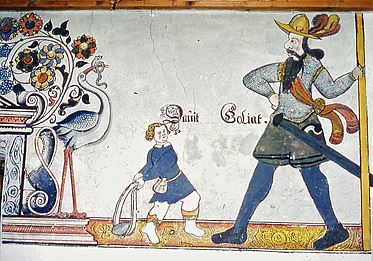 Dauit Goliat.